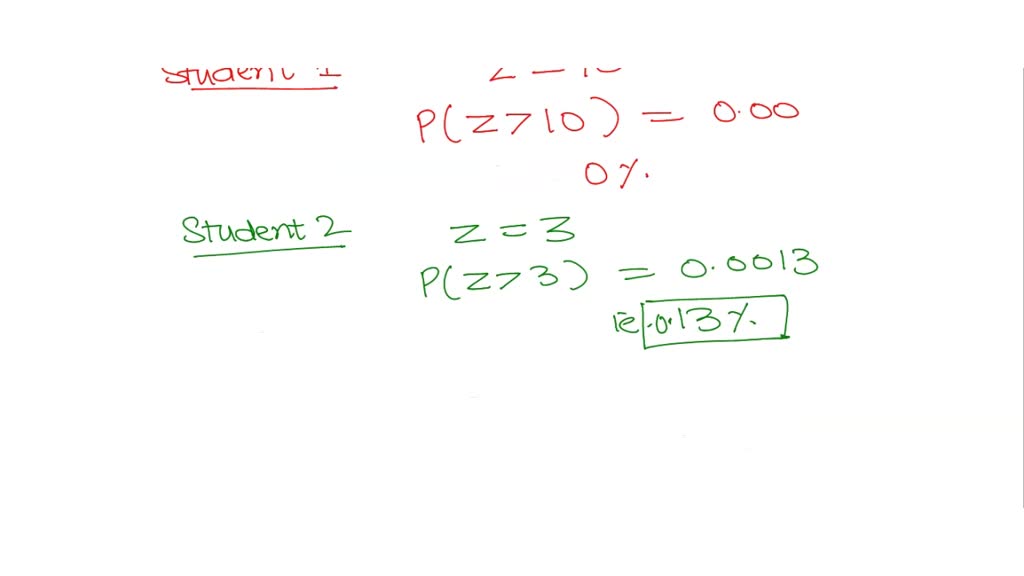 Student 1 z = 10
P(Z>10) = 0.00
0%.
Student 2 z = 3
P(Z>3) = 0.0013
ie .0.13%.